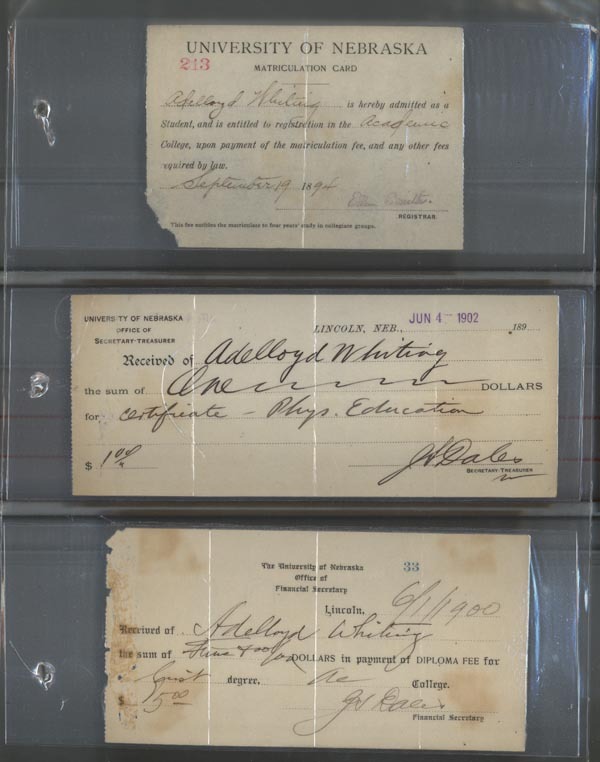 UNIVERSITY OF NEBRASKA
213
MATRICULATION CARD
Adelloyd Whiting is hereby admitted as a
Student, and is entitled to registration in the Academic
College, upon payment of the matriculation fee, and any other fees
equired by law.
September 19 1894
REGISTRAR.
This fee entitles the matriculate to four years' study in collegiate groups.
UNIVERSITY OF NEBRASKA
OFFICE OF
SECRETARY-TREASURER
LINCOLN, NEB., JUN 4 - 1902 189
Received of Adelloyd Whiting
the sum of One DOLLARS
for certificate - Phys. Education
$ 1.00
J S Dales
SECRETARY-TREASURER
The University of Nebraska 33
Office of
Financial Secretary
Lincoln. 6/1/1900
Received of Adelloyd Whiting
the sum of DOLLARS in payment of DIPLOMA FEE for
degree, Ac College.
$ 5.00
J S Dales
Financial Secretary